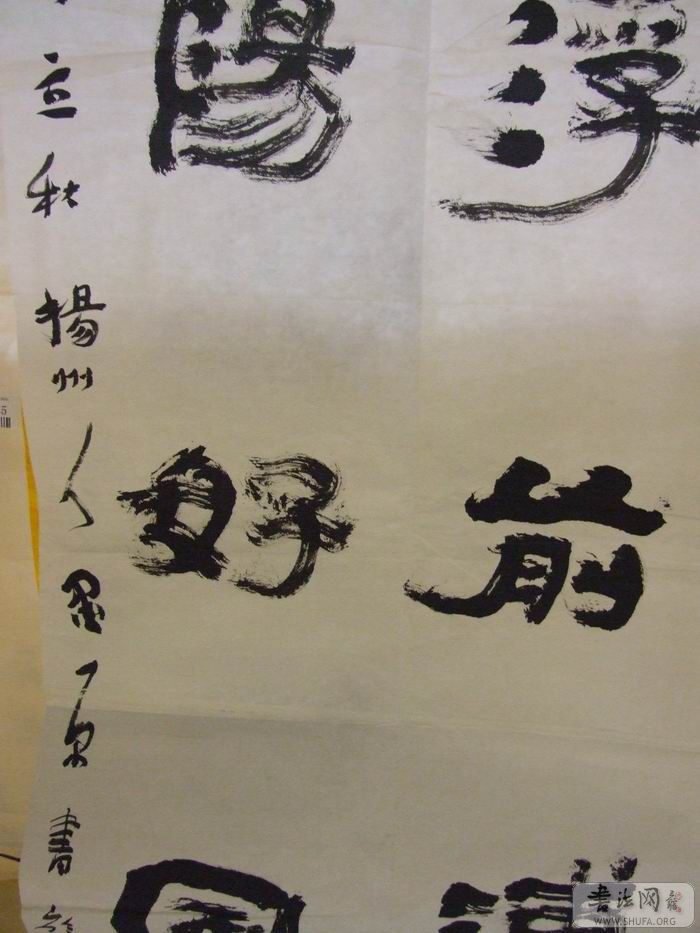 浮前
陽好
立秋揚州人原書
书法网
WWW.SHUFA.ORG